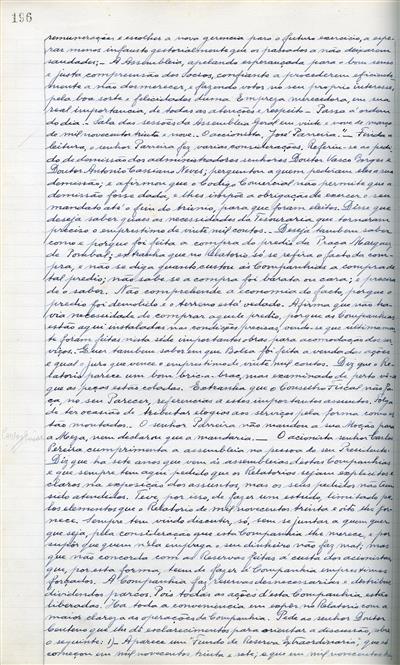 196
remuneração e escolher a nova gerencia para o futuro exercicio, a espe-
rar menos infausto gestorialmente que os passados a não deixarem
saudades; — A Assembleia, apelando esperançada para o bom senso
e justa compreensão dos Socios, confiante a procederem eficiente-
mente a não desmerecer, e fazendo votos no seu proprio interesse,
pela boa sorte e felicidades duma Empreza merecedora, em sua
real importancia, de todas as atenções e respeito. Passa á ordem
do dia. — Sala das sessões da Assembleia Geral em vinte e nove de março
de mil novecentos trinta e nove. — O accionista, José Parreira." — Finda a
leitura, o senhor Parreira fez varias considerações. Referiu-se ao pedi-
do de demissão dos administradores senhores Doutor Vasco Borges e
Doutor Antonio Cassiano Neves; perguntou a quem pediram eles a sua
demissão; e afirmou que o Codigo Comercial não permite que a
demissão fosse dada, e lhes impõe a obrigação de exercer o seu
mandato até o fim do trienio, para que foram eleitos. Disse que
deseja saber quaes as necessidades da Tesouraria que tornaram
preciso o emprestimo de vinte mil contos. — Deseja tambem saber
como e porque foi feita a compra do predio da Praça Marquez
de Pombal; estranha que no Relatorio só se refira o facto da com-
pra, e não se diga quanto custou ás Companhias a compra de
tal predio; não sabe se a compra foi barata ou cara; e precisa
de o saber. Não compreende a economia de facto, porque o
predio foi demolido e o terreno está vedado. Afirma que não ha-
via necessidade de comprar aquele predio, porque as Companhias
estão aqui instaladas nas condições precisas, vendo-se que ultimamen-
te foram feitas nesta séde importantes obras para acomodação dos ser-
viços. Quer tambem saber em que Bolsa foi feita a venda das ações
e qual o juro que vence o emprestimo de vinte mil contos. Diz que o Re-
latorio parece um bom tecido; mas examinado de perto vê-se
que as peças estão cotadas. Estranha que o Conselho Fiscal não fa-
ça, no seu Parecer, referencias a estes importantes assuntos. Folga
de ter ocasião de tributar elogios aos serviços pela forma como es-
tão montados. — O senhor Parreira não mandou a sua Moção para
a Meza, nem declarou que a mandaria. — O acionista senhor Carlos
Pereira cumprimenta a assembleia na pessoa do seu Presidente.
Diz que ha sete anos que vem ás assembleias destas Companhias
e que sempre tem aqui pedido que os Relatorios sejam explicitos e
claros na exposição dos assuntos, mas os seus pedidos não tem
sido atendidos. Teve, por isso, de fazer um estudo, limitado pe-
los elementos que o Relatorio de mil novecentos trinta e oito lhe for-
nece. Sempre tem vindo discutir, só, sem se juntar a quem quer
que seja, pela consideração que esta Companhia lhe merece, e por
supôr que quem nela emprega o seu dinheiro não faz mal; mas
que não concorda com as Reservas feitas á custa dos accionistas
que, por esta forma, tem de fazer á Companhia emprestimos
forçados. A Companhia faz reservas desnecessarias e distribue
dividendos parcos. Pois todas as ações d'esta Companhia estão
liberadas. Ha toda a conveniencia em expor no Relatorio com a
maior clareza as operações da Companhia. Pede ao senhor Doutor
Centeno que lhe dê esclarecimentos para orientar a discussão sobre
o seguinte: 1) — Aparece um "Fundo de Reserva Extraordinaria", que só
começou em mil novecentos trinta e sete; e que em mil novecentos